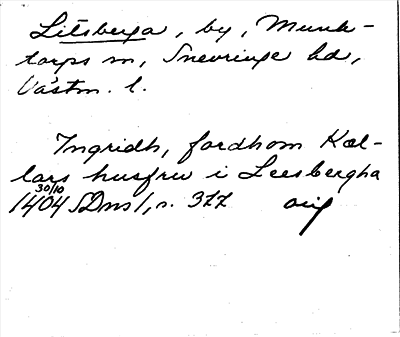 Litsberga, by, Munk-
torps sn, Snevringe hd,
Västm. l.
Ingridh, fordhom Kæl-
lars husfrw i Leesbergha
30/10
1404 SDns 1, s. 377 orig